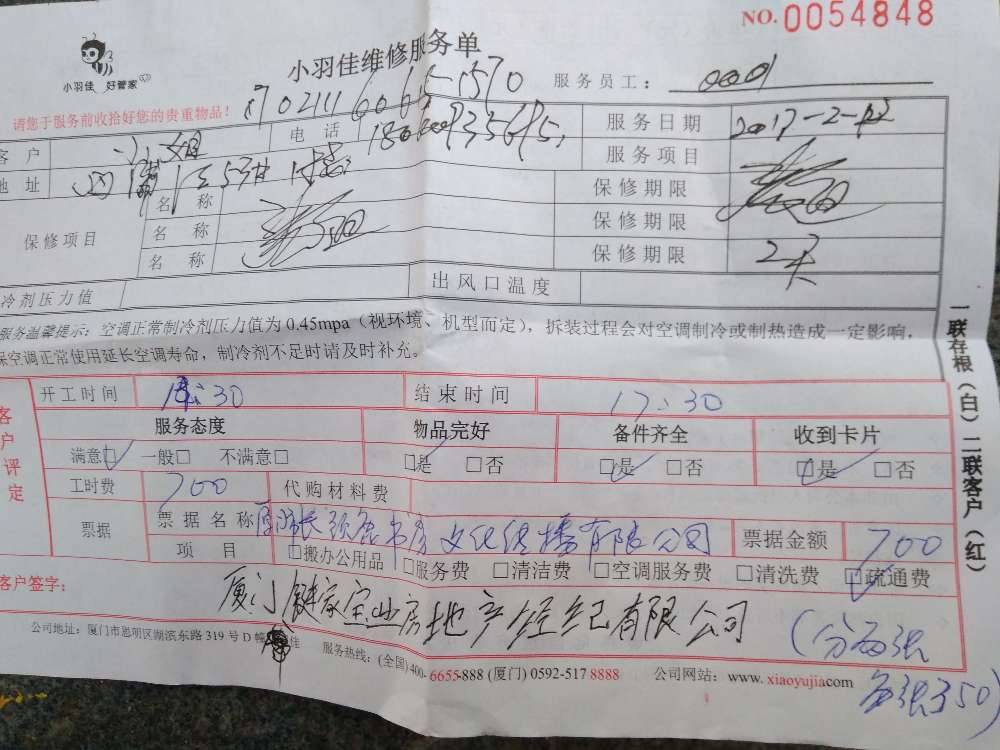 NO. 0054848
小羽佳维修服务单
小羽佳 好管家
服务员工： 0001
请您于服务前收拾好您的贵重物品！
客 户 小姐 电 话 服务日期 2017-2-
地 址 服务项目
保修项目 名 称 保修期限
名 称 保修期限
名 称 保修期限 2天
冷剂压力值 出风口温度
服务温馨提示：空调正常制冷剂压力值为 0.45mpa（视环境、机型而定），拆装过程会对空调制冷或制热造成一定影响，
保空调正常使用延长空调寿命，制冷剂不足时请及时补充。
一联存根（白）二联客户（红）
客户评定
开工时间 :30 结束时间 17:30
服务态度 物品完好 备件齐全 收到卡片
满意☑ 一般□ 不满意□ ☑是 □否 ☑是 □否 ☑是 □否
工时费 700 代购材料费
票据 票据名称 书房文化传播有限公司 票据金额 700
项 目 □搬办公用品 □服务费 □清洁费 □空调服务费 □清洗费 ☑疏通费
客户签字： 厦门 家宝业房地产经纪有限公司 （分两张
每张350）
公司地址：厦门市思明区湖滨东路 319 号 D 幢 佳 服务热线：(全国)400-6655-888 (厦门) 0592-517 8888 公司网站：www.xiaoyujia.com